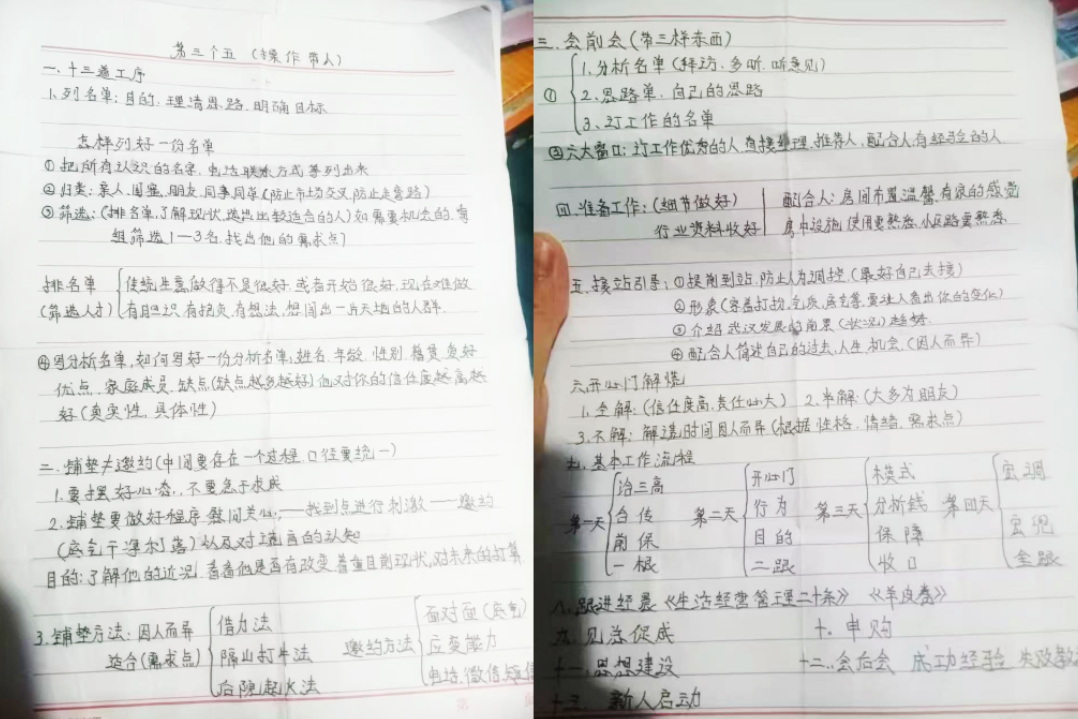 第三个五 (操作带人)
一. 十三道工序
1. 列名单: 目的. 理清思路. 明确目标
怎样列好一份名单
① 把所有认识的名字. 电话联系方式等列出来
② 归类: 亲人. 闺蜜. 朋友. 同事同学 (防止市场交叉. 防止走弯路)
③ 筛选: (排名单了解现状. 选出比较适合的人) 如需要机会的. 每
组筛选1—3名. 找出他的需求点)
排名单 传统生意做得不是很好. 或者开始很好. 现在难做
(筛选人才) 有胆识. 有抱负. 有想法. 想闯出一片天地的人群.
④ 写分析名单. 如何写好一份分析名单: 姓名. 年龄. 性别. 籍贯. 爱好
优点. 家庭成员. 缺点(缺点越多越好) 他对你的信任度越高越
好 (真实性. 具体性)
二. 铺垫≠邀约(中间要存在一个过程. 口径要统一)
1. 要摆好心态. 不要急于求成
2. 铺垫要做好程序. 慰问关心 —— 找到点进行刺激 —— 邀约
(底气干净利落) 以及对上有的认知
目的: 了解他的近况. 看看他是否有改变. 着重目前现状. 对未来的打算
3. 铺垫方法: 因人而异
适合(需求点)
借力法
隔山打牛法
后院起火法
邀约方法
面对面 (底气)
应变能力
电话. 微信. 短信
三. 会前会 (带三样东西)
①
1. 分析名单 (拜访. 多听. 听意见)
2. 思路单. 自己的思路
3. 订工作的名单
② 六大窗口: 订工作优秀的人. 直接管理. 推荐人. 配合人. 有经验的人
四. 准备工作: (细节做好)
行业资料收好
配合人: 房间布置温馨. 有家的感觉
房中设施. 使用要熟悉. 小区路要熟悉
五. 接站引导: ① 提前到站. 防止人为调控. (最好自己去接)
② 形象 (穿着打扮. 气质. 底气等. 要让人看出你的变化)
③ 介绍武汉发展的前景 (状况) 趋势.
④ 配合人简述自己的过去. 人生. 机会. (因人而异)
六. 开心门解慌
1. 全解: (信任度高. 责任心大) 2. 半解: (大多为朋友)
3. 不解: 解谎时间因人而异 (根据性格. 情绪. 需求点)
七. 基本工作流程
第一天
洽三高
合传
前保
一跟
第二天
开心门
行为
目的
二跟
第三天
模式
分析线
保障
收口
第四天
宏调
宏兜
全跟
八. 跟进经晨 《生活经营管理二十条》 《羊皮卷》
九. 见总促成 十. 申购
十一. 思想建设 十二. 会后会 成功经验 失败教
十三. 新人启动